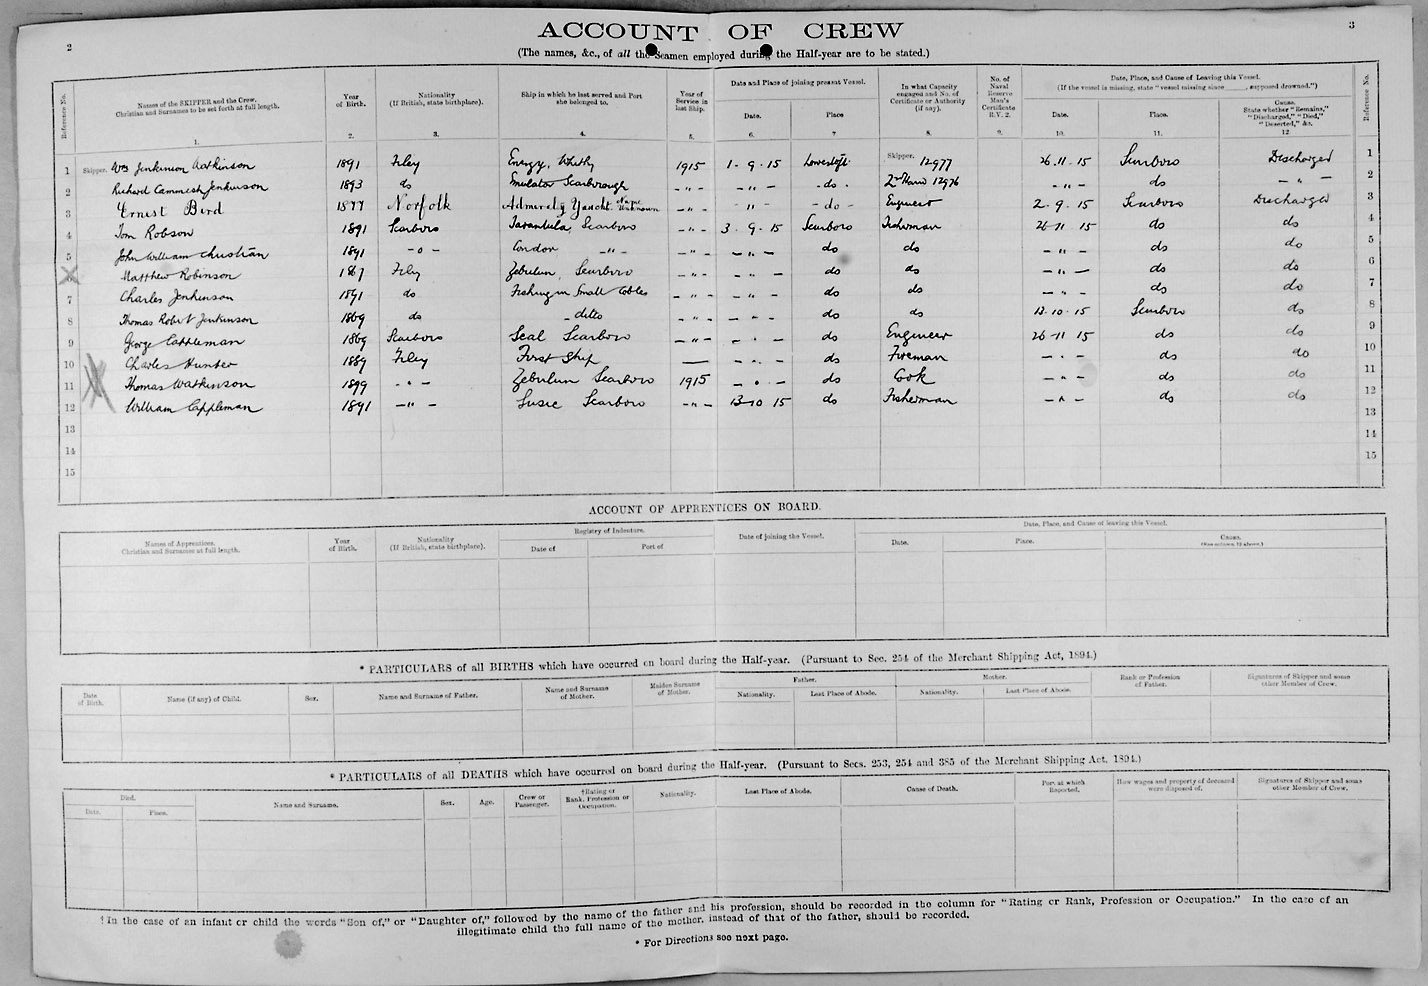 2
3
ACCOUNT OF CREW
(The names, &c., of all the Seamen employed during the Half-year are to be stated.)
Reference No.
Names of the SKIPPER and the Crew.
Christian and Surnames to be set forth at full length.
1.
Year of Birth.
2.
Nationality
(If British, state birthplace).
3.
Ship in which he last served and Port she belonged to.
4.
Year of Service in last Ship.
5.
Date and Place of joining present Vessel.
Date.
6.
Place
7
In what Capacity engaged and No. of Certificate or Authority (if any).
8.
No. of Naval Reserve Man's Certificate R.V. 2.
9.
Date, Place, and Cause of Leaving this Vessel.
(If the vessel is missing, state "vessel missing since ______, supposed drowned.")
Date.
10.
Place.
11.
Cause.
State whether "Remains," "Discharged," "Died," "Deserted," &c.
12
Reference No.
1 Skipper. Wm Jenkinson Watkinson 1891 Filey Energy, Whitby 1915 1-9-15 Lowestoft Skipper. 12977 26.11.15 Scarboro Discharged 1
2 Richard Cammish Jenkinson 1893 do Emulator Scarborough -"- -"- -do- 2nd Hand 12976 -"- do -"- 2
3 Ernest Bird 1877 Norfolk Admiralty Yaucht Name Unknown -"- -"- -do- Engineer 2.9.15 Scarboro Discharged 3
4 Tom Robson 1891 Scarboro Tarantula, Scarboro -"- 3.9.15 Scarboro Fisherman 26-11 15 do do 4
5 John William Christian 1891 -o- Condor -"- -"- -"- do do -"- do do 5
Matthew Robinson 1867 Filey Zebulun, Scarboro -"- -"- do do -"- do do 6
7 Charles Jenkinson 1891 do Fishing in Small Cobles -"- -"- do do -"- do do 7
8 Thomas Robert Jenkinson 1869 do -ditto -"- -"- do do 13.10.15 Scarboro do 8
9 George Cappleman 1869 Scarboro Seal Scarboro -"- -"- do Engineer 26-11 15 do do 9
10 Charles Hunter 1889 Filey First Ship — -"- do Fireman -"- do do 10
11 Thomas Watkinson 1899 -"- Zebulun Scarboro 1915 -"- do Cook -"- do do 11
12 William Cappleman 1891 -"- Susie Scarboro -"- 13-10 15 do Fisherman -"- do do 12
13 13
14 14
15 15
ACCOUNT OF APPRENTICES ON BOARD.
Names of Apprentices.
Christian and Surnames at full length.
Year of Birth.
Nationality
(If British, state birthplace).
Registry of Indenture.
Date of
Port of
Date of joining the Vessel.
Date, Place, and Cause of leaving this Vessel.
Date.
Place.
Cause.
(See column 12 above.)
* PARTICULARS of all BIRTHS which have occurred on board during the Half-year. (Pursuant to Sec. 254 of the Merchant Shipping Act, 1894.)
Date of Birth.
Name (if any) of Child.
Sex.
Name and Surname of Father.
Name and Surname of Mother.
Maiden Surname of Mother.
Father.
Nationality.
Last Place of Abode.
Mother.
Nationality.
Last Place of Abode.
Rank or Profession of Father.
Signatures of Skipper and some other Member of Crew.
* PARTICULARS of all DEATHS which have occurred on board during the Half-year. (Pursuant to Secs. 253, 254 and 385 of the Merchant Shipping Act, 1894.)
Died.
Date.
Place.
Name and Surname.
Sex.
Age.
Crew or Passenger.
†Rating or Rank, Profession or Occupation.
Nationality.
Last Place of Abode.
Cause of Death.
Port at which Reported.
How wages and property of deceased were disposed of.
Signatures of Skipper and some other Member of Crew.
†In the case of an infant or child the words "Son of," or "Daughter of," followed by the name of the father and his profession, should be recorded in the column for "Rating or Rank, Profession or Occupation." In the case of an
illegitimate child the full name of the mother, instead of that of the father, should be recorded.
* For Directions see next page.